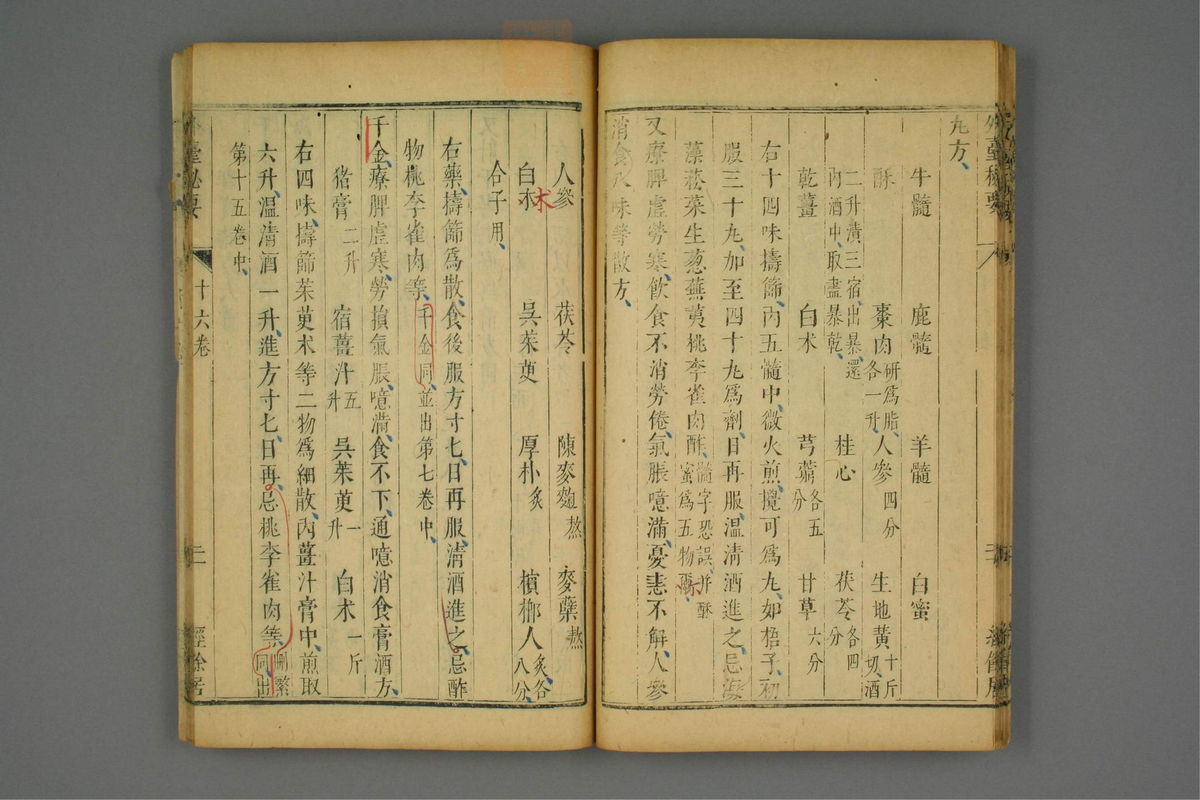 外臺秘要
九方
牛髓 鹿髓 羊髓 白蜜
酥 棗肉研爲脂各一升 人參四分 生地黃十斤切酒
二升漬三宿出暴還內酒中取盡暴乾 桂心 茯苓各四分
乾薑 白朮 芎藭各五分 甘草六分
右十四味擣篩內五髓中微火煎攪可爲九如梧子初
服三十九加至四十九爲劑日再服溫清酒進之忌海
藻菘菜生葱蕪荑桃李雀肉酢髓字恐誤并酥蜜爲五物爾
又療脾虛勞寒飲食不消勞倦氣脹噫滿憂恚不解人參
消食八味等散方
人參 茯苓 陳麥麴熬 麥蘗熬
白木 朮 吳茱萸 厚朴炙 檳榔人炙各八分
合子用
右藥擣篩爲散食後服方寸七日再服清酒進之忌酢
物桃李雀肉等千金同並出第七卷中
千金療脾虛寒勞損氣脹噫滿食不下通噫消食膏酒方
猪膏二升 宿薑汁五升 吳茱萸一升 白朮一斤
右四味擣篩茱萸朮等二物爲細散內薑汁膏中煎取
六升溫清酒一升進方寸七日再忌桃李雀肉等刪繁同出
第十五卷中
臺秘要 十六卷 二 經餘居